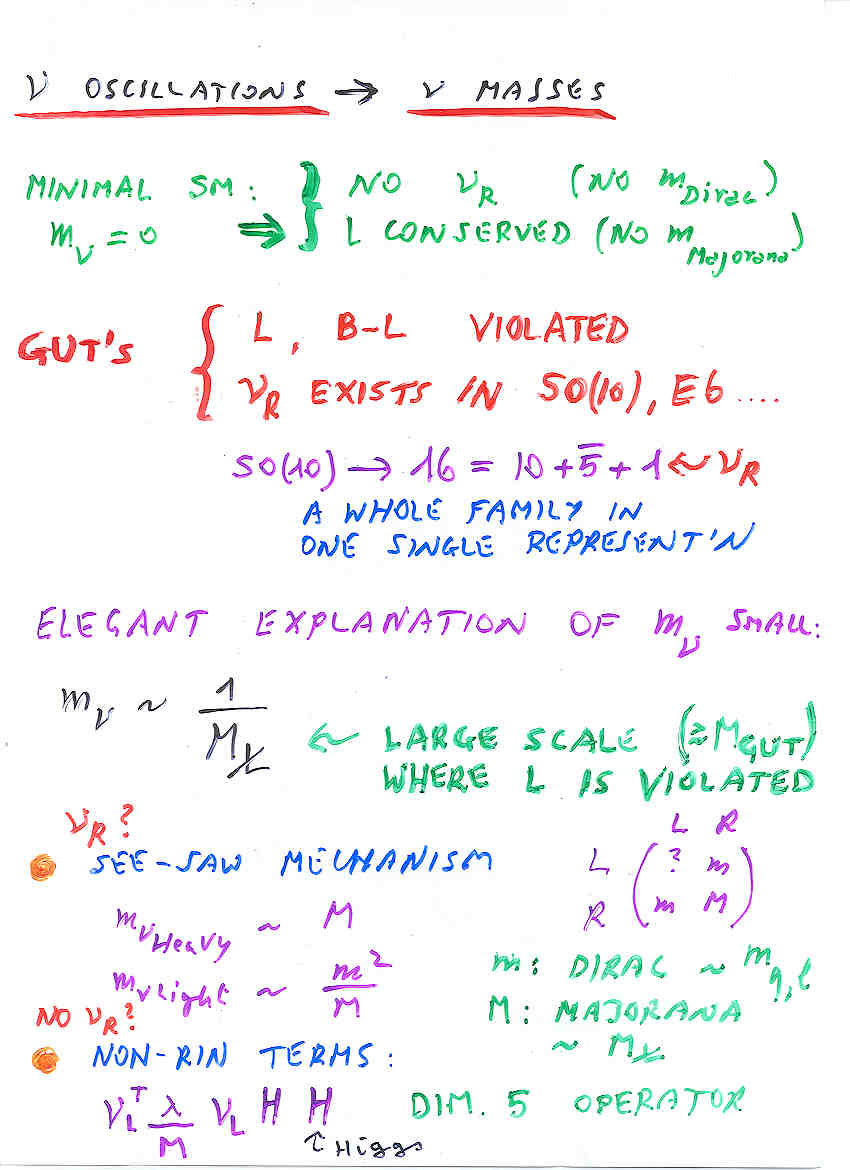 ν OSCILLATIONS → ν MASSES
MINIMAL SM: } NO ν_R (NO m_Dirac)
m_ν = 0 ⇒ } L CONSERVED (NO m_Majorana)
GUT'S { L, B-L VIOLATED
ν_R EXISTS IN SO(10), E6 ....
SO(10) → 16 = 10 + 5̅ + 1 ← ν_R
A WHOLE FAMILY IN
ONE SINGLE REPRESENT'N
ELEGANT EXPLANATION OF m_ν SMALL:
m_ν ~ 1/M_L̸ ← LARGE SCALE (≳ M_GUT)
WHERE L IS VIOLATED
ν_R?
• SEE-SAW MECHANISM
L R
L ( ? m )
R ( m M )
m_ν Heavy ~ M
m_ν Light ~ m²/M
m: DIRAC ~ m_q,l
M: MAJORANA
~ M_L̸
NO ν_R?
• NON-RIN TERMS:
ν_L^T λ/M ν_L H H DIM. 5 OPERATOR
↑ Higgs